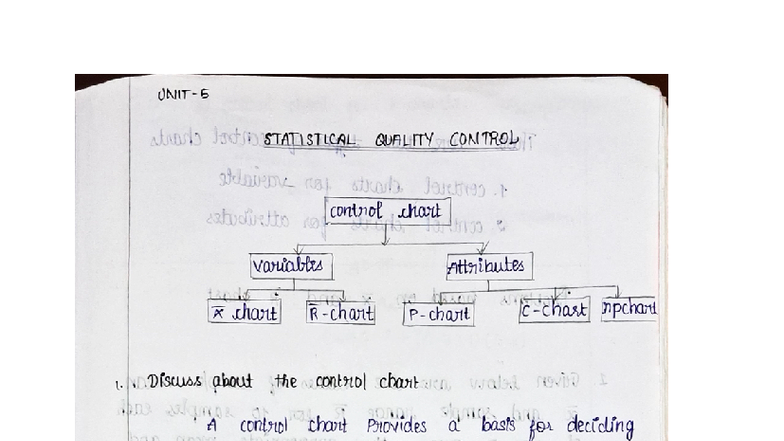 UNIT-5
STATISTICAL QUALITY CONTROL
control chart
variables
Attributes
X̄ chart
R̄-chart
P-chart
C̄-chart
npchart
1. Discuss about the control chart
A control chart Provides a basis for deciding